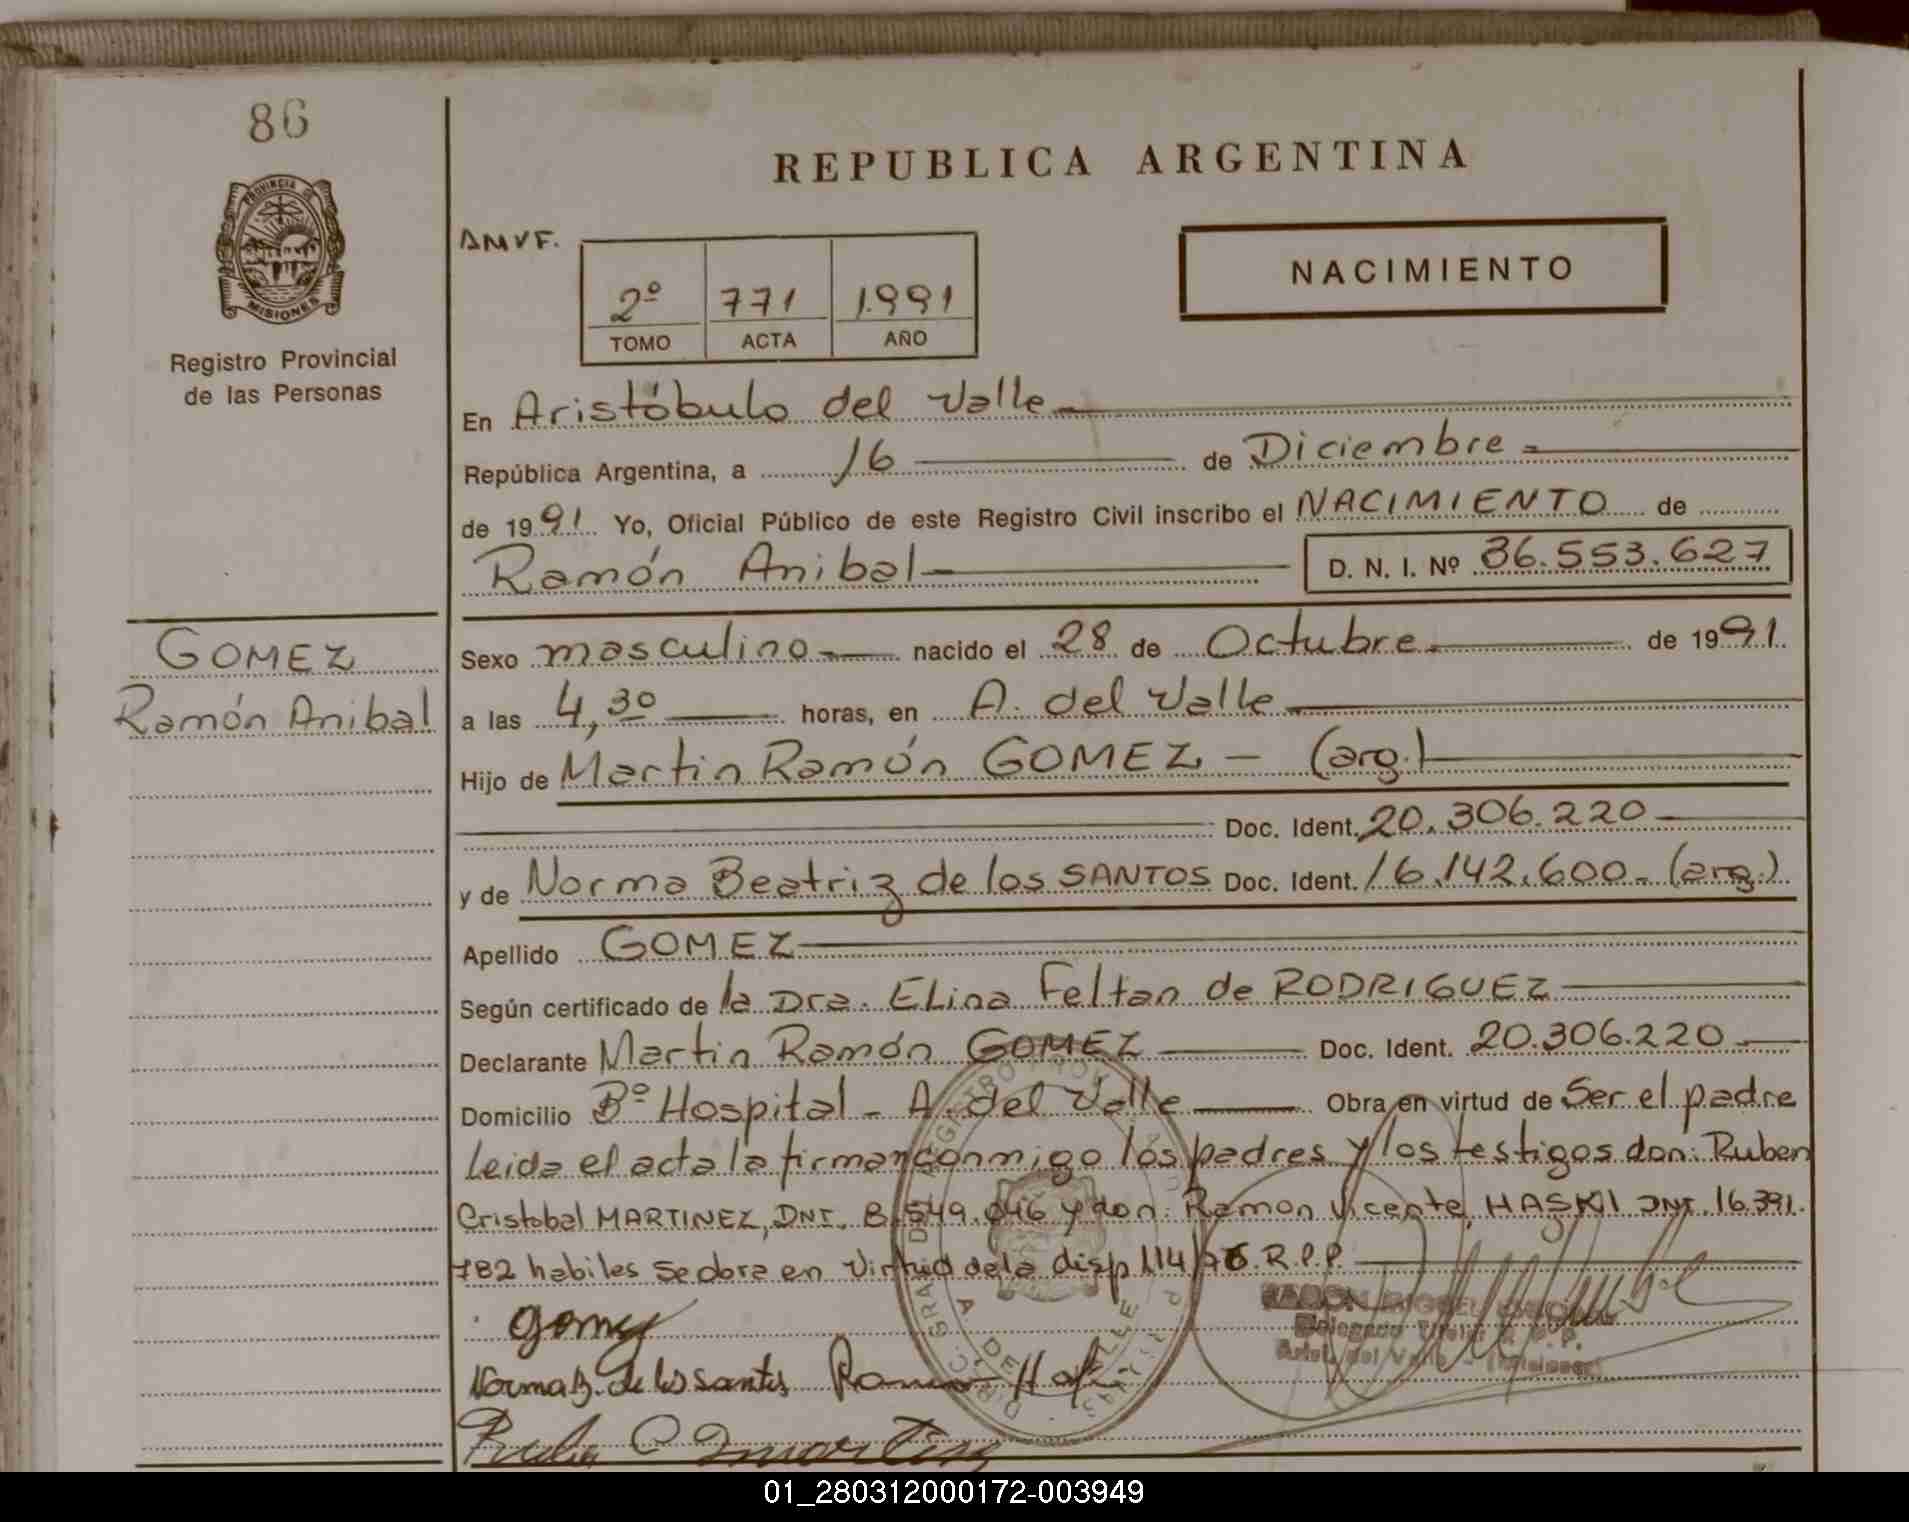 86
PROVINCIA DE
MISIONES
Registro Provincial
de las Personas
GOMEZ
Ramón Anibal
REPUBLICA ARGENTINA
DMVF.
2º 771 1.991
TOMO ACTA AÑO
NACIMIENTO
En Aristóbulo del Valle
República Argentina, a 16 de Diciembre
de 1991. Yo, Oficial Público de este Registro Civil inscribo el NACIMIENTO de
Ramón Anibal D. N. I. Nº 36.553.627
Sexo masculino nacido el 28 de Octubre de 1991.
a las 4,30 horas, en A. del Valle
Hijo de Martin Ramón GOMEZ - (arg.)
Doc. Ident. 20.306.220
y de Norma Beatriz de los SANTOS Doc. Ident. 16.142.600 - (arg.)
Apellido GOMEZ
Según certificado de la Dra. Elina Feltan de RODRIGUEZ
Declarante Martin Ramón GOMEZ Doc. Ident. 20.306.220
Domicilio Bº Hospital - A. del Valle Obra en virtud de Ser el padre
Leida el acta la firman conmigo los padres y los testigos don: Ruben
Cristobal MARTINEZ, DNI. 8.549.046 y don: Ramon Vicente, HASKI DNI. 16.391.
782 habiles se obra en Virtud de la disp 114/76.R.P.P.
Gomez
Norma B. de los santos Ramon
Delegado Titular R. P. P.
Arist. del Valle - (Misiones)
Ruben C Martinez
01_280312000172-003949